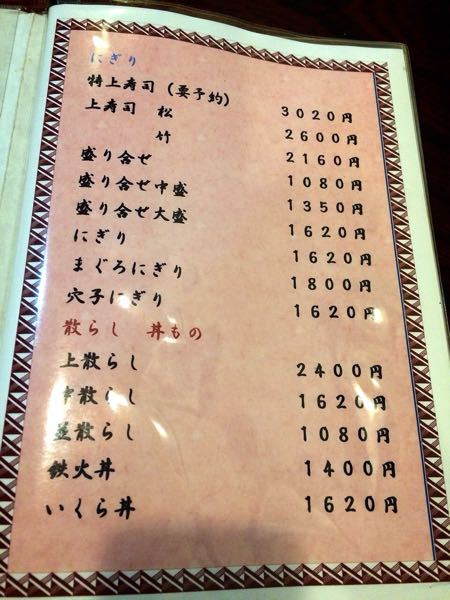 にぎり
特上寿司(要予約) 3020円
上寿司 松 2600円
竹 2160円
盛り合せ 1080円
盛り合せ中盛 1350円
盛り合せ大盛 1620円
にぎり 1620円
まぐろにぎり 1800円
穴子にぎり 1620円
散らし 丼もの
上散らし 2400円
中散らし 1620円
並散らし 1080円
鉄火丼 1400円
いくら丼 1620円